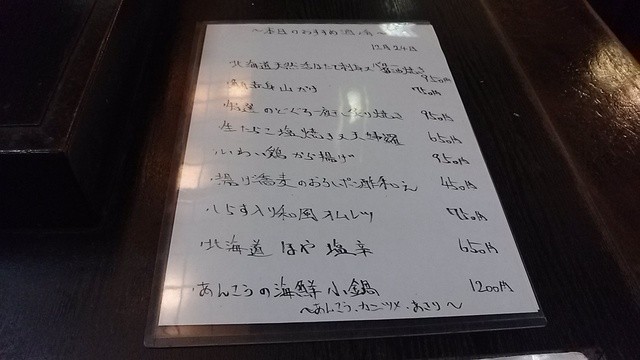 ～本日のおすすめ酒肴～
12月24日
・北海道天然ほたて刺身又は醤油焼き
950円
・鮪赤身山かけ 750円
・特選のどぐろ一夜干し炙り焼き 950円
・生たこ塩焼き又天婦羅 650円
・いわい鶏から揚げ 950円
・揚げ蕎麦のおろしポン酢和え 450円
・しらす入り和風オムレツ 750円
・北海道ほや塩辛 650円
・あんこうの海鮮小鍋 1200円
～あんこう・カニツメ・あさり～